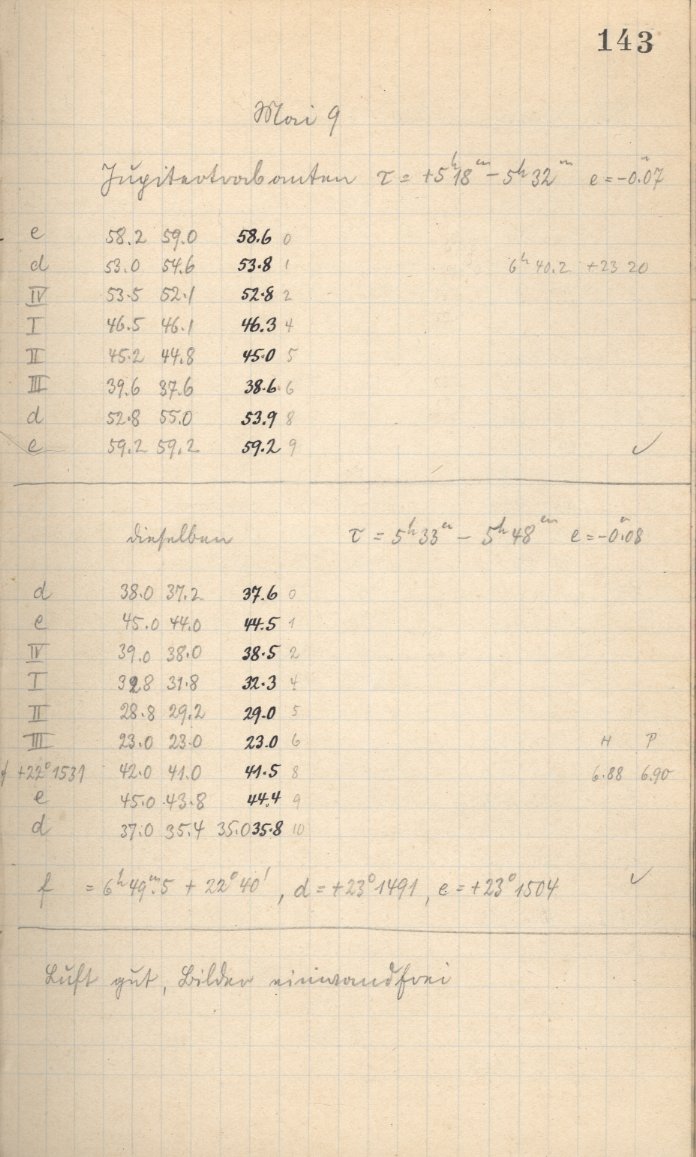 143
Mai 9
Jupitertrabanten τ = +5ʰ18ᵐ – 5ʰ32ᵐ e = –0.ᵐ07
e 58.2 59.0 58.6 0
d 53.0 54.6 53.8 1 6ʰ 40.2 +23 20
IV 53.5 52.1 52.8 2
I 46.5 46.1 46.3 4
II 45.2 44.8 45.0 5
III 39.6 37.6 38.6 6
d 52.8 55.0 53.9 8
e 59.2 59.2 59.2 9 ✓
dieselben τ = 5ʰ33ᵐ – 5ʰ48ᵐ e = –0.ᵐ08
d 38.0 37.2 37.6 0
e 45.0 44.0 44.5 1
IV 39.0 38.0 38.5 2
I 32.8 31.8 32.3 4
II 28.8 29.2 29.0 5
III 23.0 23.0 23.0 6 H P
f +22°1531 42.0 41.0 41.5 8 6.88 6.90
e 45.0 43.8 44.4 9
d 37.0 35.4 35.0 35.8 10
f = 6ʰ49ᵐ.5 + 22°40', d = +23°1491, e = +23°1504 ✓
Luft gut, Bilder einwandfrei